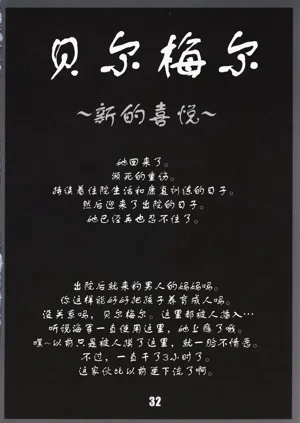 贝尔梅尔
~新的喜悦~
她回来了。
濒死的重伤。
持续着住院生活和康复训练的日子。
然后迎来了出院的日子。
她已经再也忍不住了。
出院后就来约男人的妈妈吗。
你这样能好好把孩子养育成人吗。
没关系吗，贝尔梅尔。这里都被人插入…
听说海军一直使用这里，她上瘾了哦。
嘿~以前只是被人摸了这里，就一脸不情愿。
不过，一直干了3小时了。
这家伙比以前更下流了啊。
32